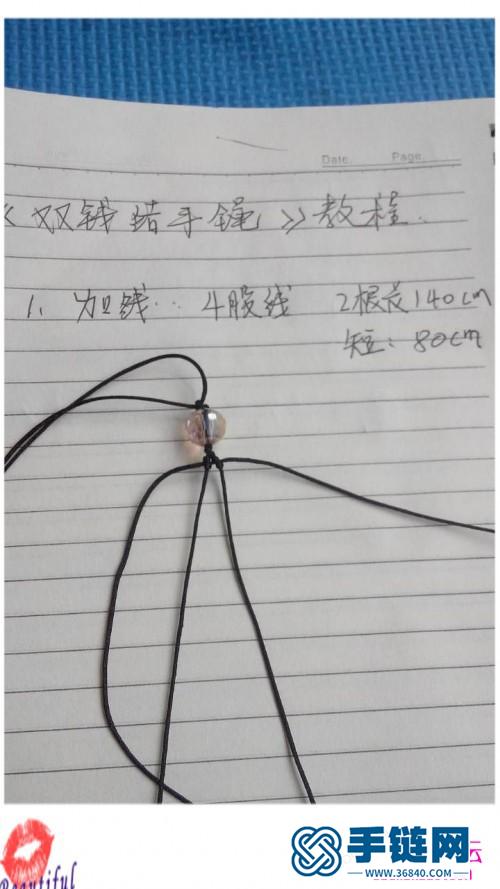 Date. Page.
《双钱结手绳》教程.
1. 加线.. 4股线 2根长140cm
短: 80cm
Beautiful
手链网
WWW.36840.COM